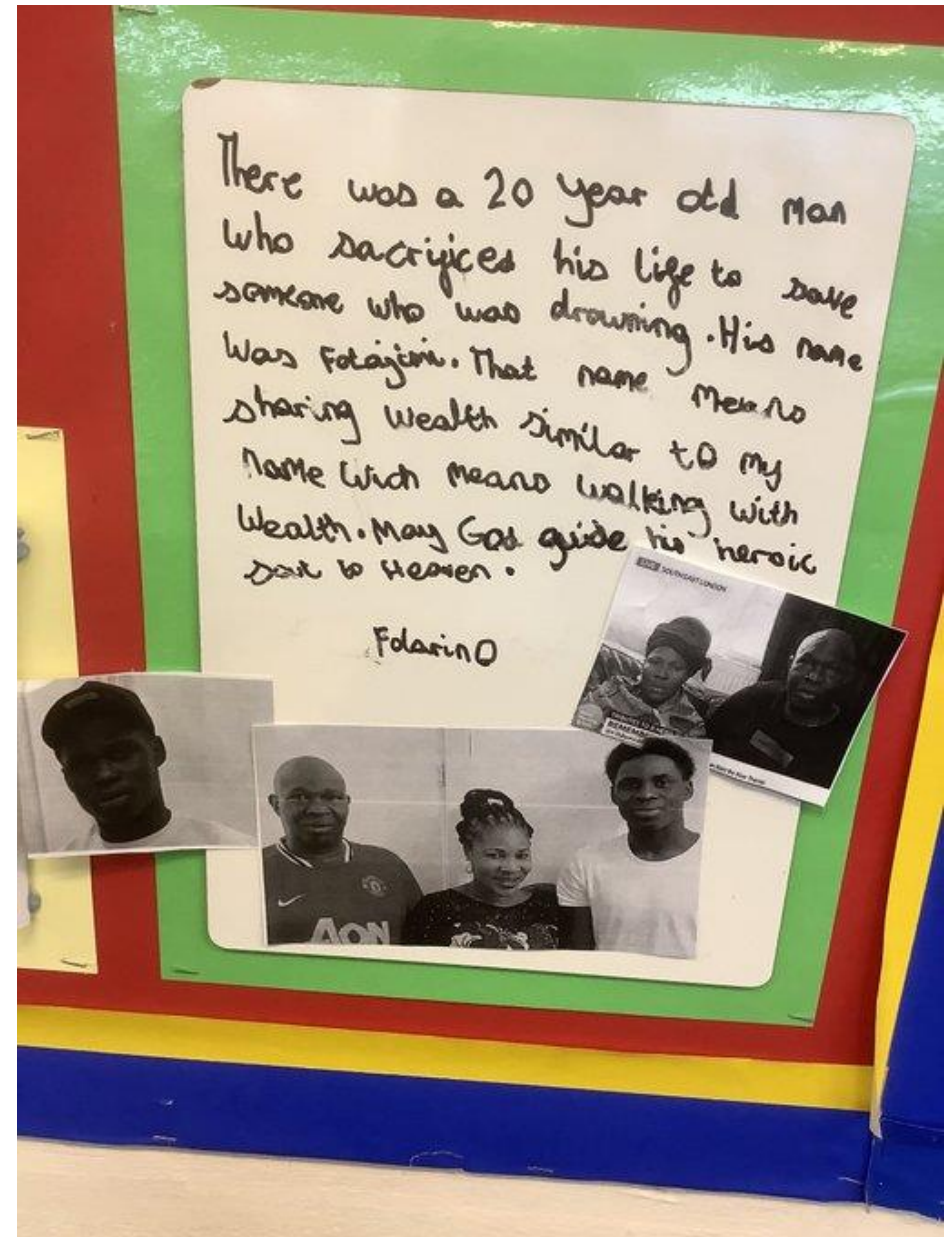 There was a 20 year old man
who sacrifices his life to save
someone who was drowning. His name
was Folajimi. That name means
sharing wealth similar to my
name wich means walking with
wealth. May God guide his heroic
soul to Heaven.
Folarin O
LIVE SOUTH EAST LONDON
REMEMB
AON